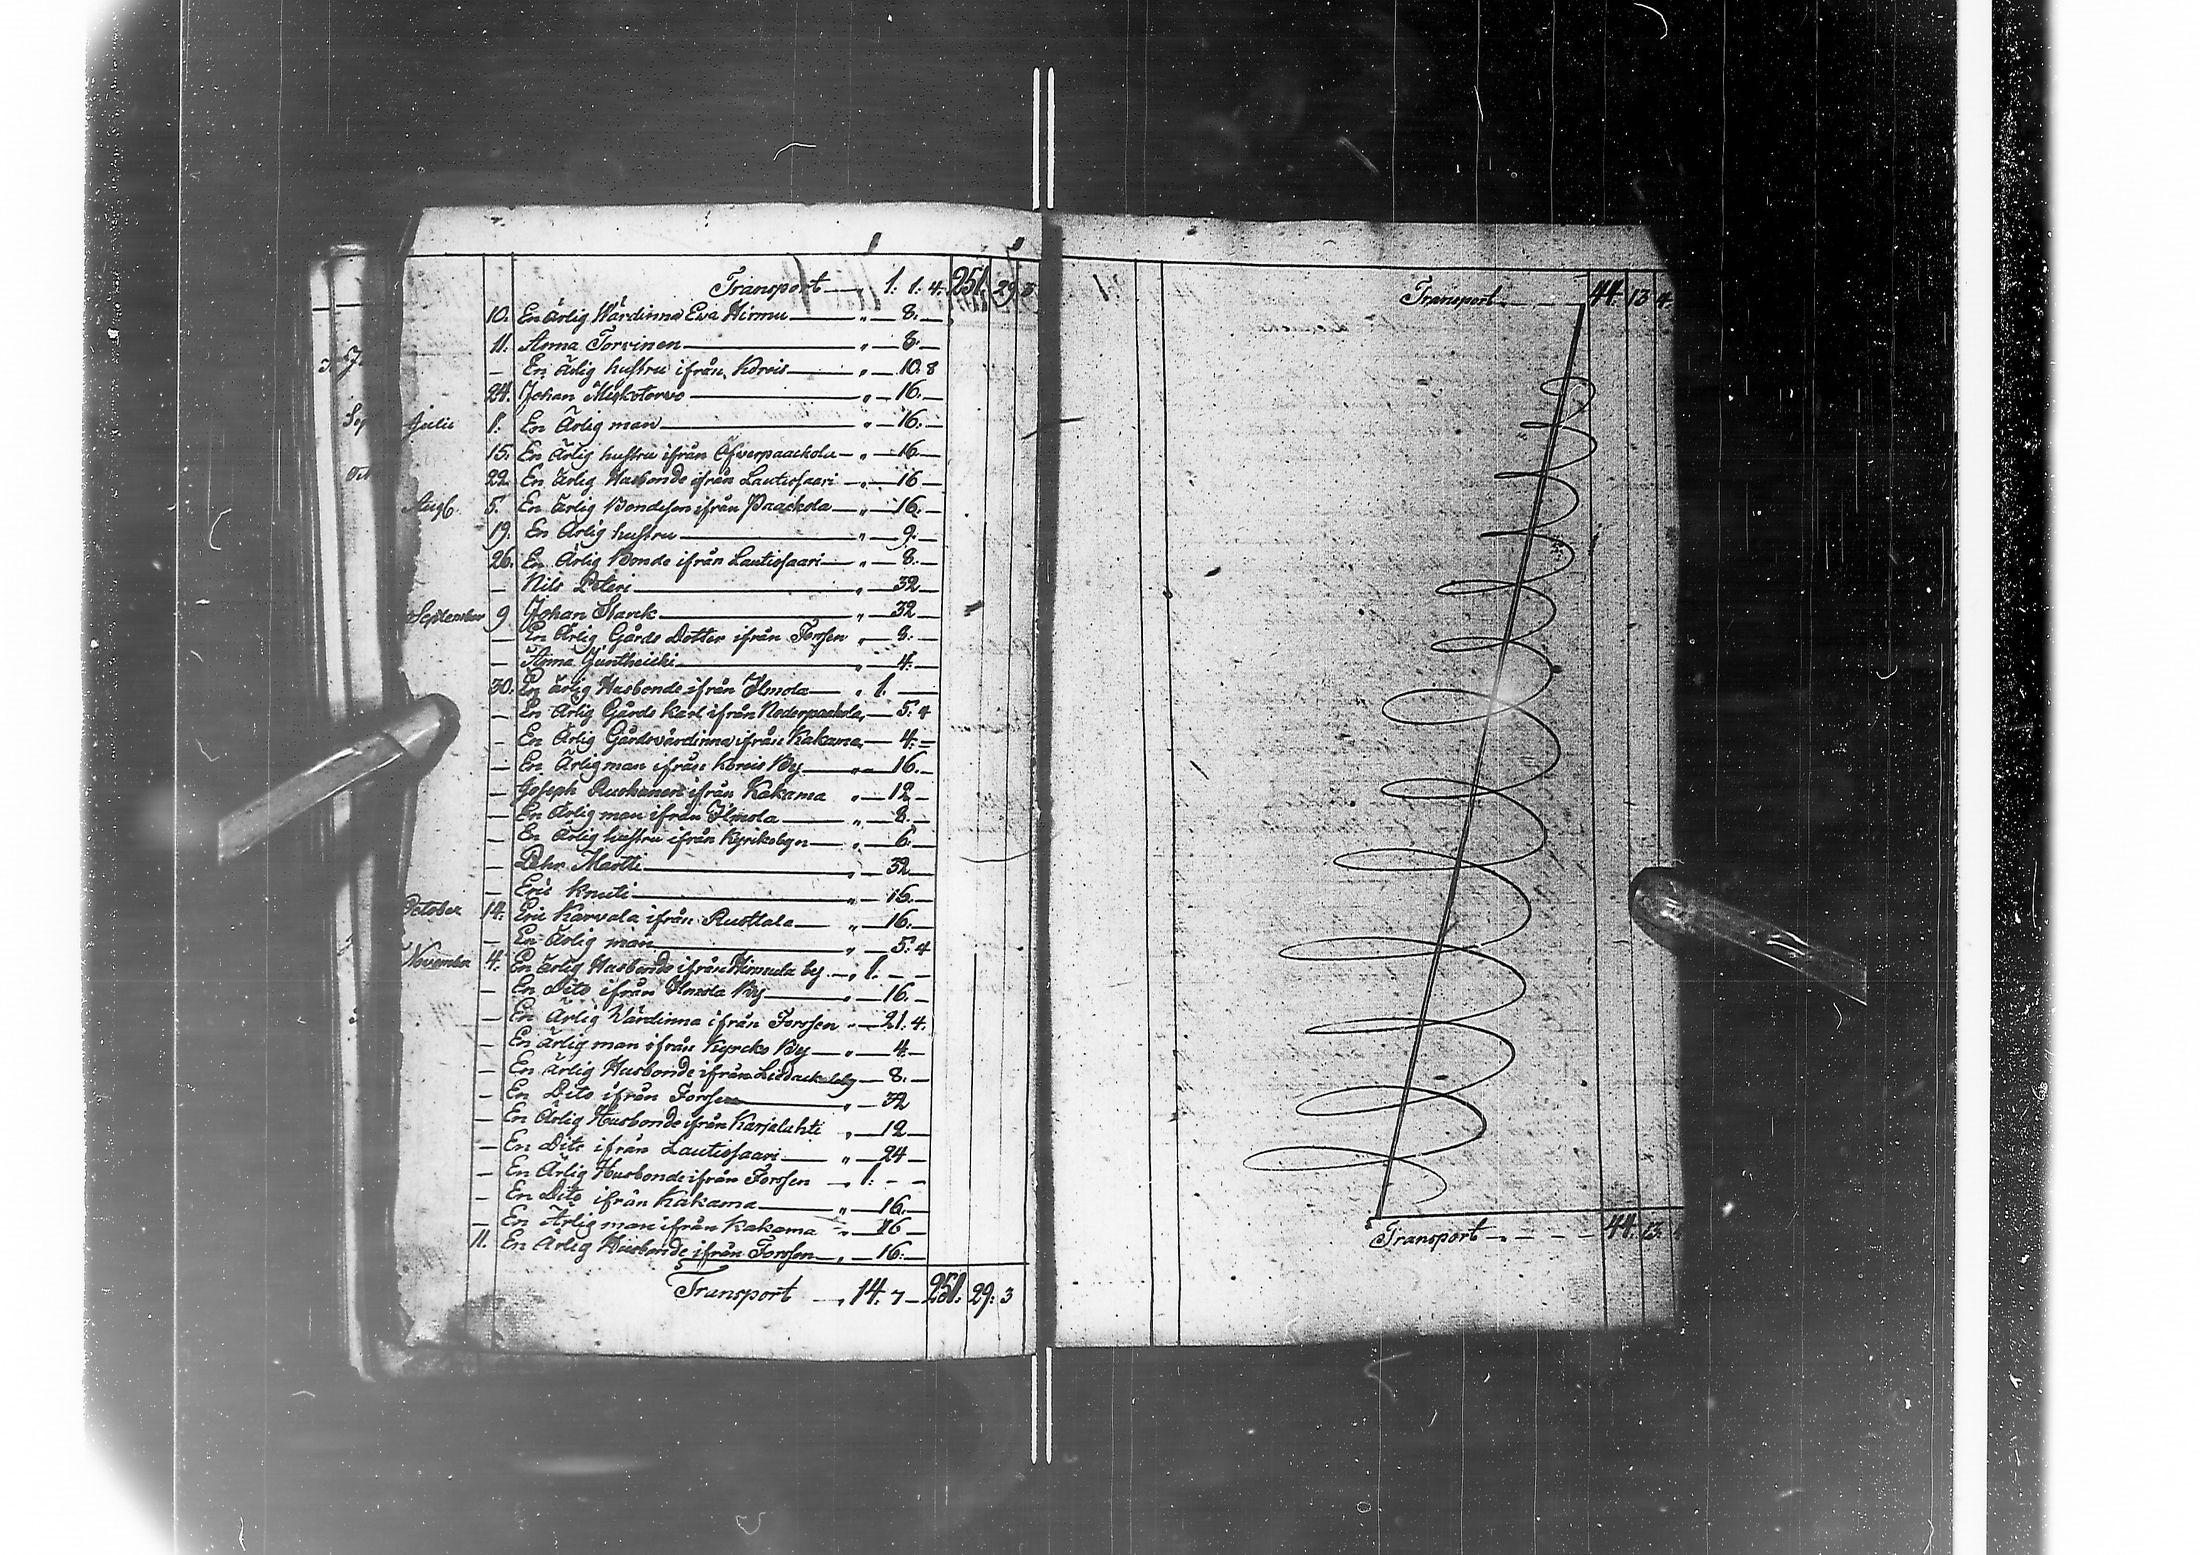 Transport — 1. 1. 4. 251. 29. 3
10. En ärlig Wärdinna Eva Hirmu — „ — 8. —
11. Anna Torvinen — „ — 8. —
— En Ärlig hustru ifrån Korvis — „ — 10. 8
24. Johan Miskotervo — „ — 16. —
Julii 1. En Ärlig man — „ — 16. —
15. En Ärlig hustru ifrån Öfverpaackola — „ — 16. —
22. En Ärlig Husbonde ifrån Lautiosaari — „ — 16 —
Aug. 5. En Ärlig Bondeson ifrån Paackola — „ — 16. —
19. En Ärlig hustru — „ — 9. —
26. En Ärlig Bonde ifrån Lautiosaari — „ — 8. —
— Nils Peteri — „ — 32 —
September 9 Johan Starck — „ — 32 —
— En Ärlig Gårds Dotter ifrån Torssen „ — 8. —
— Anna Juntheicki — „ — 4. —
30. En ärlig Husbonde ifrån Ilmola — „ 1. —
— En Ärlig Gårds Karl ifrån Nederpaackola „ — 5. 4
— En Ärlig Gårdsvärdinna ifrån Kakama — 4. —
— En Ärlig man ifrån Korvis By — „ — 16. —
— Joseph Ruohanen ifrån Kakama „ — 12 —
— En Ärlig man ifrån Ilmola — „ — 8. —
— En Ärlig hustru ifrån Kyrkobyn — „ — 6. —
— Pehr Martti — „ — 32 —
— Eric Knuti — „ — 16. —
October 14. Eric Karvala ifrån Ruottala — „ — 16. —
— En Ärlig man — „ — 5. 4
November 4. En Ärlig Husbonde ifrån Hirmula by — „ 1. — —
— En Dito ifrån Ilmola By — „ — 16. —
— En Ärlig Värdinna ifrån Torssen „ — 21. 4.
— En Ärlig man ifrån Kyrcko By — „ — 4. —
— En ärlig Husbonde ifrån — 8. —
— En Dito ifrån Torssen — „ — 32
— En Ärlig Husbonde ifrån Karjalahti „ — 12 —
— En Dito ifrån Lautiosaari — „ — 24 —
— En Ärlig Husbonde ifrån Torssen „ 1. — —
— En Dito ifrån Kakama — „ — 16. —
— En Ärlig man ifrån Kakama — „ — 16 —
11. En Ärlig Husbonde ifrån Torssen — „ — 16. —
Transport — „ 14. 7 — 251. 29. 3
Transport — — 44 13 4
Transport — — — 44. 13.